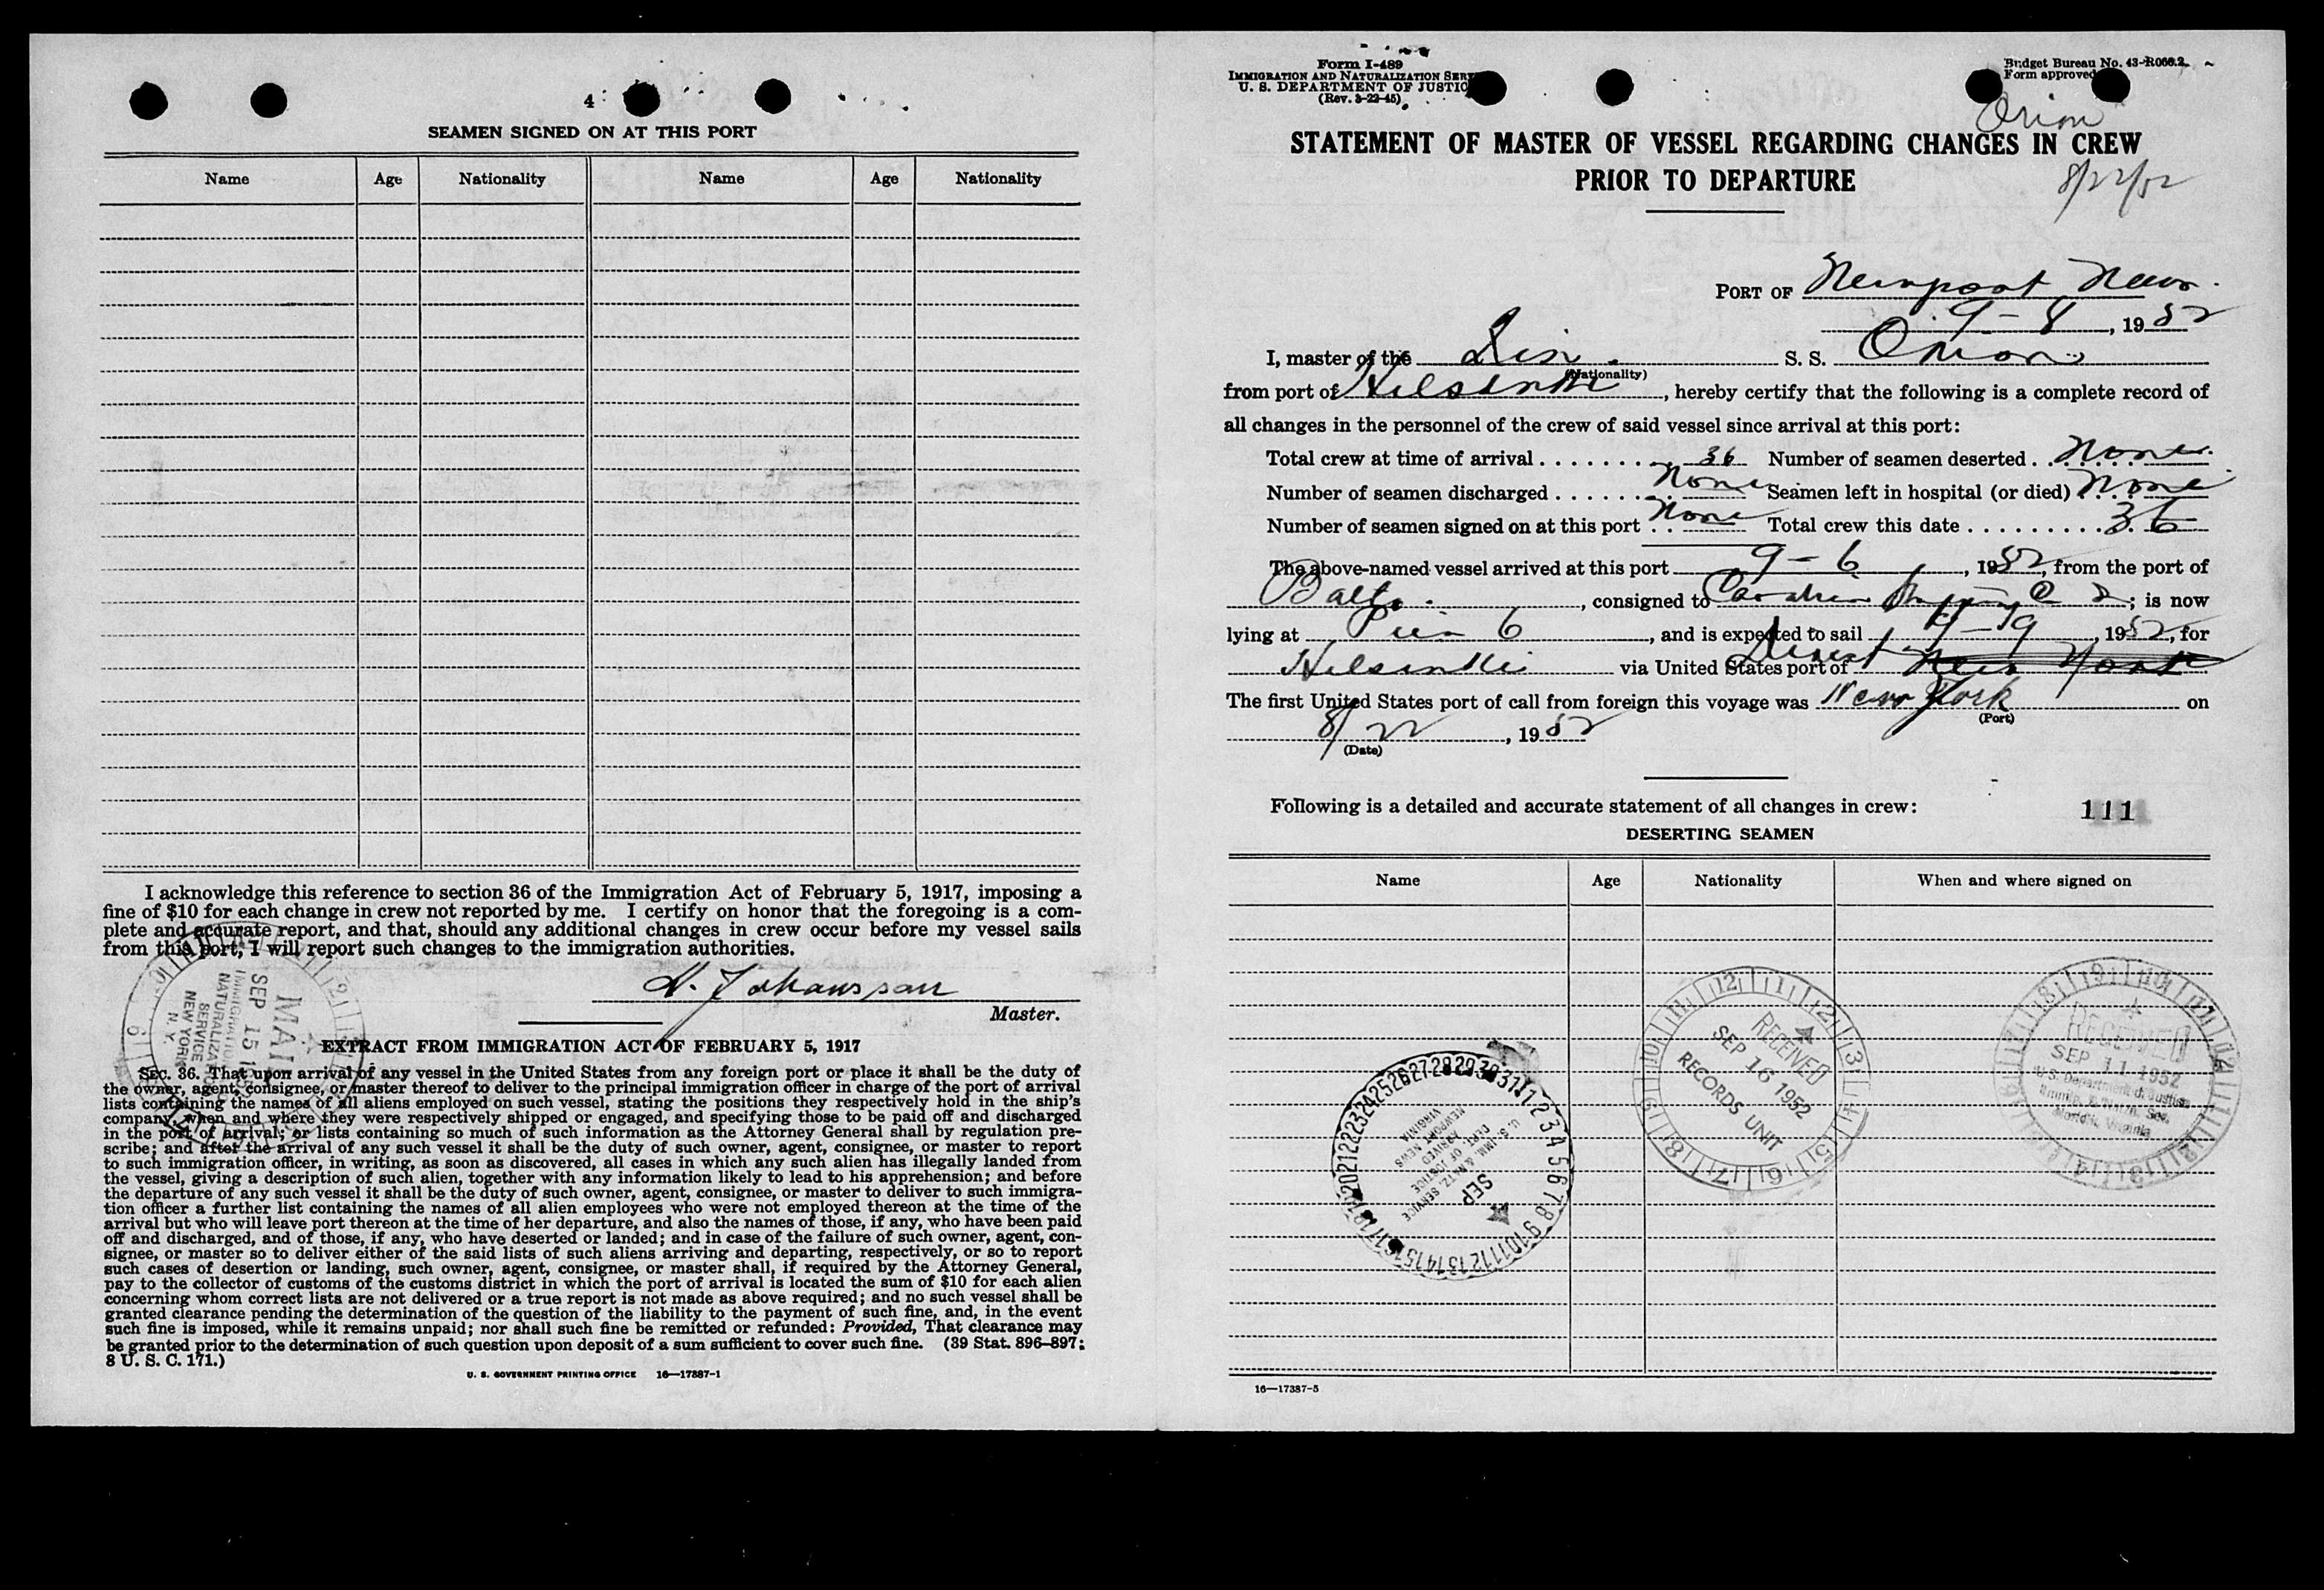 4
SEAMEN SIGNED ON AT THIS PORT
Name Age Nationality Name Age Nationality
I acknowledge this reference to section 36 of the Immigration Act of February 5, 1917, imposing a
fine of $10 for each change in crew not reported by me. I certify on honor that the foregoing is a com-
plete and accurate report, and that, should any additional changes in crew occur before my vessel sails
from this port, I will report such changes to the immigration authorities.
Johansson
Master.
MAIL
SEP 15
IMMIGRATION
NATURALIZATION
SERVICE
NEW YORK
N. Y.
EXTRACT FROM IMMIGRATION ACT OF FEBRUARY 5, 1917
SEC. 36. That upon arrival of any vessel in the United States from any foreign port or place it shall be the duty of
the owner, agent, consignee, or master thereof to deliver to the principal immigration officer in charge of the port of arrival
lists containing the names of all aliens employed on such vessel, stating the positions they respectively hold in the ship's
company, when and where they were respectively shipped or engaged, and specifying those to be paid off and discharged
in the port of arrival; or lists containing so much of such information as the Attorney General shall by regulation pre-
scribe; and after the arrival of any such vessel it shall be the duty of such owner, agent, consignee, or master to report
to such immigration officer, in writing, as soon as discovered, all cases in which any such alien has illegally landed from
the vessel, giving a description of such alien, together with any information likely to lead to his apprehension; and before
the departure of any such vessel it shall be the duty of such owner, agent, consignee, or master to deliver to such immigra-
tion officer a further list containing the names of all alien employees who were not employed thereon at the time of the
arrival but who will leave port thereon at the time of her departure, and also the names of those, if any, who have been paid
off and discharged, and of those, if any, who have deserted or landed; and in case of the failure of such owner, agent, con-
signee, or master so to deliver either of the said lists of such aliens arriving and departing, respectively, or so to report
such cases of desertion or landing, such owner, agent, consignee, or master shall, if required by the Attorney General,
pay to the collector of customs of the customs district in which the port of arrival is located the sum of $10 for each alien
concerning whom correct lists are not delivered or a true report is not made as above required; and no such vessel shall be
granted clearance pending the determination of the question of the liability to the payment of such fine, and, in the event
such fine is imposed, while it remains unpaid; nor shall such fine be remitted or refunded: Provided, That clearance may
be granted prior to the determination of such question upon deposit of a sum sufficient to cover such fine. (39 Stat. 896–897;
8 U. S. C. 171.)
U. S. GOVERNMENT PRINTING OFFICE 16—17387-1
Form I-489
IMMIGRATION AND NATURALIZATION
U. S. DEPARTMENT OF JUSTIC
(Rev. 3-22-45)
Budget Bureau No. 43-R066.2.
Form approved
Orion
STATEMENT OF MASTER OF VESSEL REGARDING CHANGES IN CREW
PRIOR TO DEPARTURE
8/22/52
PORT OF Newport News
9-8, 1952
I, master of the Fin. S. S. Orion
(Nationality)
from port of Helsinki, hereby certify that the following is a complete record of
all changes in the personnel of the crew of said vessel since arrival at this port:
Total crew at time of arrival 36 Number of seamen deserted None
Number of seamen discharged None Seamen left in hospital (or died) None
Number of seamen signed on at this port None Total crew this date 36
The above-named vessel arrived at this port 9-6, 1952, from the port of
Balto., consigned to Shipping Co; is now
lying at Pier 6, and is expected to sail 9-9, 1952, for
Helsinki via United States port of Direct New York
The first United States port of call from foreign this voyage was New York on
(Port)
8/22, 1952
(Date)
Following is a detailed and accurate statement of all changes in crew: 111
DESERTING SEAMEN
Name Age Nationality When and where signed on
RECEIVED
SEP 16 1952
RECORDS UNIT
RECEIVED
SEP 11 1952
U.S. Department of Justice
Immig. & Natzn. Ser.
Norfolk, Virginia
U. S. IMM. & NATZ. SERVICE
DEPT. OF JUSTICE
ARRIVED
NEWPORT NEWS
VIRGINIA
SEP
16—17387-5